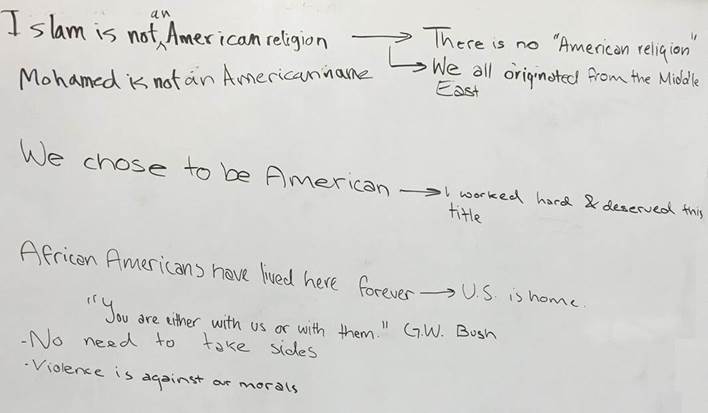 Islam is not an American religion → There is no "American religion"
↳ We all originated from the Middle East
Mohamed is not an American name
We chose to be American → I worked hard & deserved this title
African Americans have lived here forever → U.S. is home.
"You are either with us or with them." G.W. Bush
- No need to take sides
- Violence is against our morals